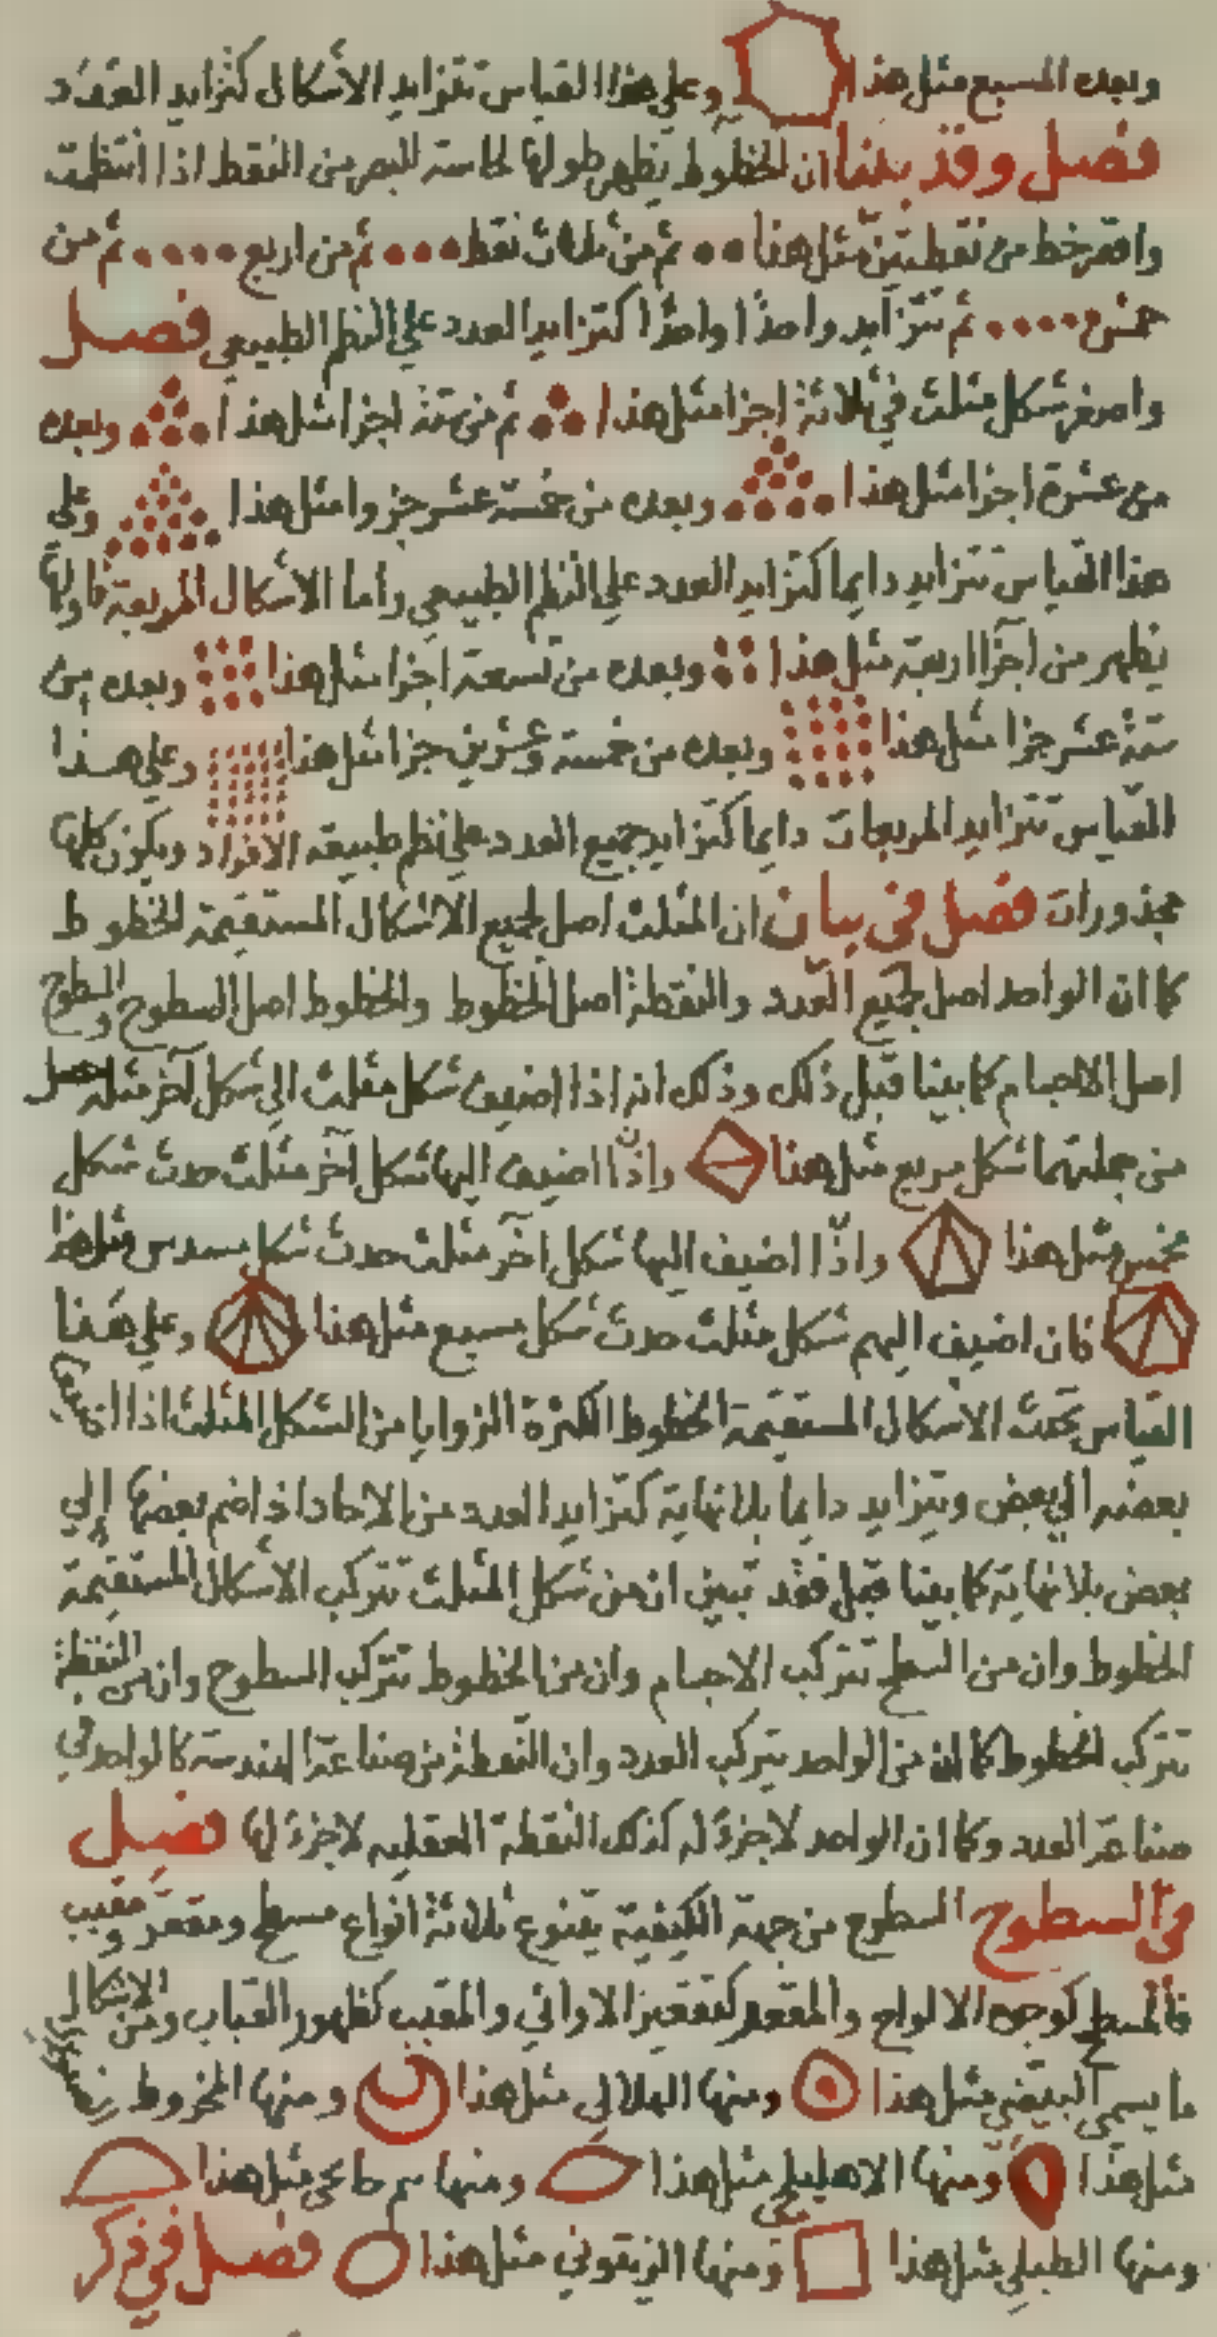 وبعده المسبع مثل هذا وعلي هذا القياس تتزايد الاشكال كتزايد العدد
فصل وقد بينا ان الخطوط يظهر طولها لحاسة البصر من النقط اذا انتظمت
واقصر خط من نقطتين مثل هذا ثم من ثلاث نقط ثم من اربع ثم من
خمس ثم تتزايد واحدًا واحدًا كتزايد العدد علي النظم الطبيعي فصل
واصغر شكل مثلث في ثلاثة اجزا مثل هذا ثم من ستة اجزا مثل هذا وبعده
من عشرة اجزا مثل هذا وبعده من خمسة عشر جزوا مثل هذا وعلي
هذا القياس تتزايد دايما كتزايد العدد علي النظم الطبيعي واما الاشكال المربعة فاولها
يظهر من اجزا اربعة مثل هذا وبعده من تسعة اجزا مثل هذا وبعده من
ستة عشر جزا مثل هذا وبعده من خمسة وعشرين جزا مثل هذا وعلي هذا
القياس تتزايد المربعات دايما كتزايد جميع العدد علي نظم طبيعة الافراد ويكون كلها
مجذورات فصل في بيان ان المثلث اصل لجميع الاشكال المستقيمة الخطوط
كما ان الواحد اصل لجميع العدد والنقطة اصل الخطوط والخطوط اصل السطوح والسطوح
اصل الاجسام كما بينا قبل ذلك وذلك انه اذا اضيف شكل مثلث الي شكل آخر مثله حصل
من جملتهما شكل مربع مثل هذا واذا اضيف اليها شكل آخر مثلث حدث شكل
مخمس مثل هذا واذا اضيف اليها شكل اخر مثلث حدث شكل مسدس مثل هذا
فان اضيف اليهم شكل مثلث حدث شكل مسبع مثل هذا وعلي هذا
القياس تحدث الاشكال المستقيمة الخطوط الكثيرة الزوايا من الشكل المثلث اذا
بعضه الي بعض وتتزايد دايما بلا نهاية كتزايد العدد من الاحاد اذا ضم بعضها إلي
بعض بلا نهاية كما بينا قبل فقد تبين ان من شكل المثلث تتركب الاشكال المستقيمة
الخطوط وان من السطح تتركب الاجسام وان من الخطوط تتركب السطوح وان من النقطة
تتركب الخطوط كما ان من الواحد يتركب العدد وان النقطة من صناعة الهندسة كالواحد في
صناعة العدد وكما ان الواحد لا جزء له كذلك النقطة العقلية لا جزء لها فصل
في السطوح السطوح من جهة الكيفية يتنوع ثلاثة انواع مسطح ومقعر ومقبب
فالمسطح كوجوه الالواح والمقعر كتقعير الاواني والمقبب كظهور القباب ومن الاشكال
ما يسمي البيضي مثل هذا ومنها الهلالي مثل هذا ومنها المخروط
مثل هذا ومنها الاهليلجي مثل هذا ومنها مثل هذا
ومنها الطبلي مثل هذا ومنها الزيتوني مثل هذا فصل في ذكر